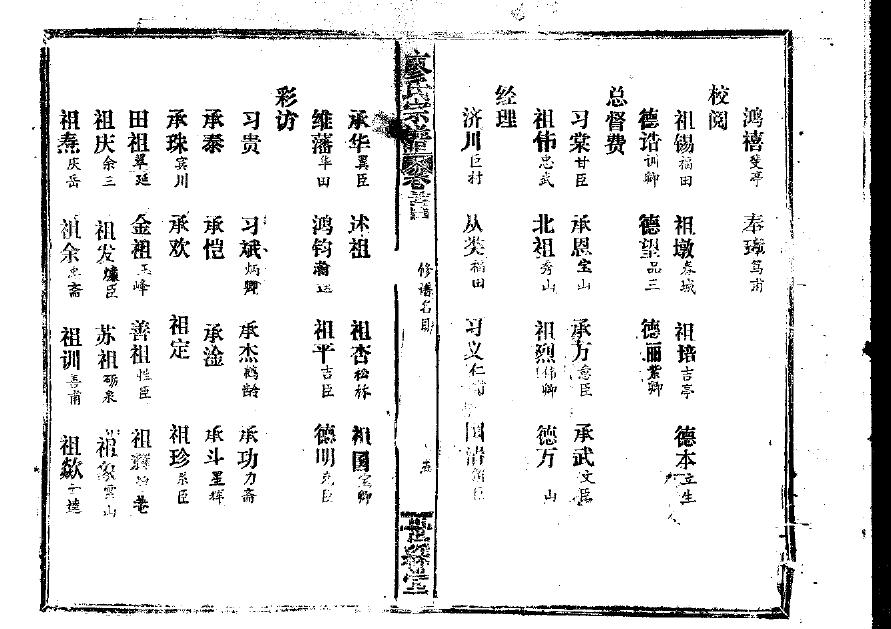 鸿禧斐亭 奉璋笃甫
校阅
祖锡福田 祖墩春城 祖培吉亭 德本立生
德诰训卿 德望品三 德丽紫卿
总督费
习棠甘臣 承恩 山 承万意臣 承武文臣
祖伟忠武 北祖秀山 祖烈伟卿 德万 山
经理
济川巨村 从类福田 习义仁 国清 臣
宗 卷
修谱名目
堂
承华翼臣 述祖 祖杏松林 祖国 卿
维藩华田 鸿钧 祖平吉臣 德明克臣
彩访
习贵 习斌炳卿 承杰鹤龄 承功力斋
承泰 承恺 承淦 承斗星辉
承珠宾川 承欢 祖定 祖珍 臣
田祖翠廷 金祖玉峰 善祖性臣 祖
祖庆余三 祖发 臣 苏祖砺泉 祖象云山
祖焘庆岳 祖余 斋 祖训善甫 祖歙 达